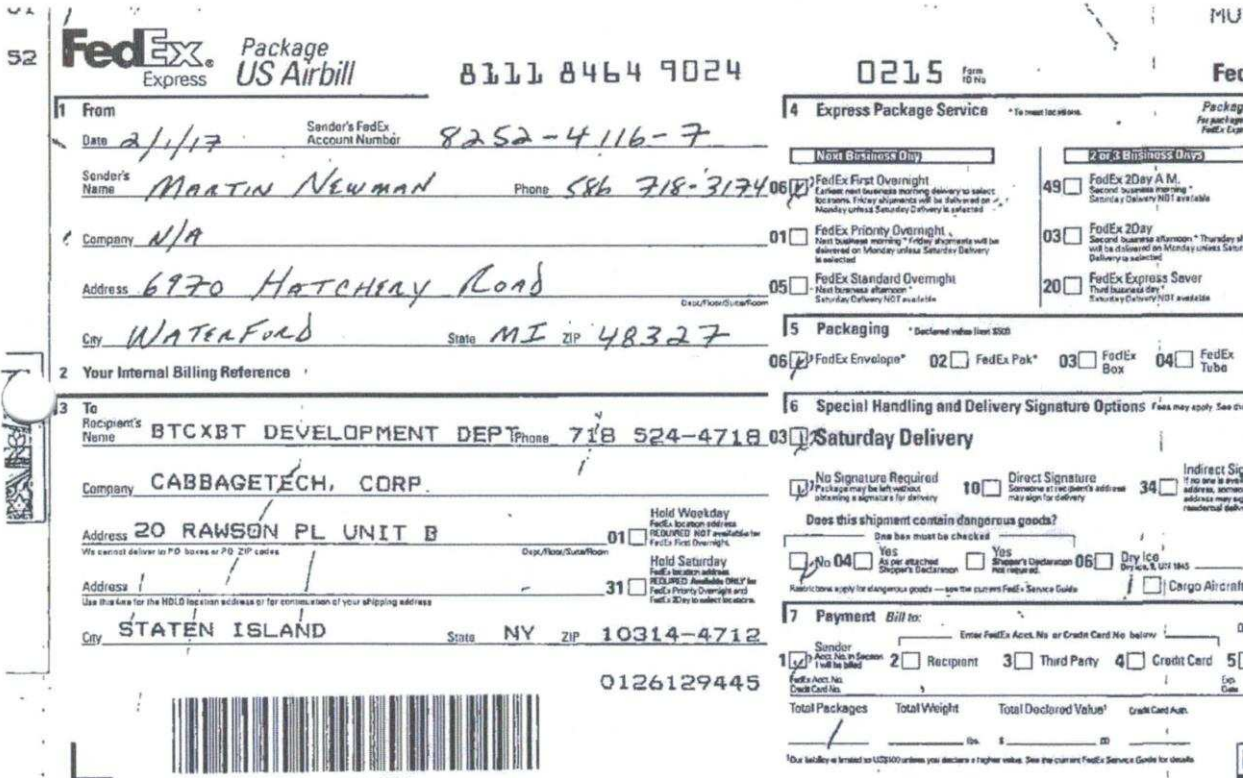 52
MU
FedEx. Express
Package
US Airbill
8111 8464 9024
0215 Form ID No
1 From
Date 2/1/17
Sender's FedEx Account Number 8252-4116-7
Sender's Name MARTIN NEWMAN Phone 586 718-3174
Company N/A
Address 6970 HATCHERY ROAD
Dept/Floor/Suite/Room
City WATERFORD State MI ZIP 48327
2 Your Internal Billing Reference
3 To
Recipient's Name BTCXBT DEVELOPMENT DEPT Phone 718 524-4718
Company CABBAGETECH, CORP.
Address 20 RAWSON PL UNIT B
We cannot deliver to PO boxes or PO ZIP codes
Dept/Floor/Suite/Room
Address
Use this line for the HOLD location address or for continuation of your shipping address
City STATEN ISLAND State NY ZIP 10314-4712
01 Hold Weekday
FedEx location address
REQUIRED NOT available for
FedEx First Overnight
31 Hold Saturday
FedEx location address
REQUIRED Available ONLY for
FedEx Priority Overnight and
FedEx 2Day to select locations
0126129445
4 Express Package Service * To most locations
Packag
Next Business Day
06 FedEx First Overnight
Earliest next business morning delivery to select
locations. Friday shipments will be delivered on
Monday unless Saturday Delivery is selected
01 FedEx Priority Overnight
Next business morning * Friday shipments will be
delivered on Monday unless Saturday Delivery
is selected
05 FedEx Standard Overnight
Next business afternoon *
Saturday Delivery NOT available
2 or 3 Business Days
49 FedEx 2Day A M.
Second business morning *
Saturday Delivery NOT available
03 FedEx 2Day
Second business afternoon * Thursday
will be delivered on Monday unless
Delivery is selected
20 FedEx Express Saver
Third business day *
Saturday Delivery NOT available
5 Packaging * Declared value limit $500
06 FedEx Envelope* 02 FedEx Pak* 03 FedEx Box 04 FedEx Tube
6 Special Handling and Delivery Signature Options Fees may apply See
03 Saturday Delivery
No Signature Required
Package may be left without
obtaining a signature for delivery
10 Direct Signature
Someone at recipient's address
may sign for delivery
34 Indirect Sig
Does this shipment contain dangerous goods?
One box must be checked
No 04 Yes
As per attached
Shipper's Declaration
Yes
Shipper's Declaration
not required.
06 Dry Ice
Cargo Aircraft
Restrictions apply for dangerous goods — see the current FedEx Service Guide
7 Payment Bill to:
Enter FedEx Acct. No or Credit Card No below
1 Sender
Acct. No. in Section
1 will be billed
2 Recipient 3 Third Party 4 Credit Card 5
FedEx Acct. No.
Credit Card No.
Exp. Date
Total Packages Total Weight Total Declared Value† Credit Card Auth.
1 lbs. $
†Our liability is limited to US$100 unless you declare a higher value. See the current FedEx Service Guide for details